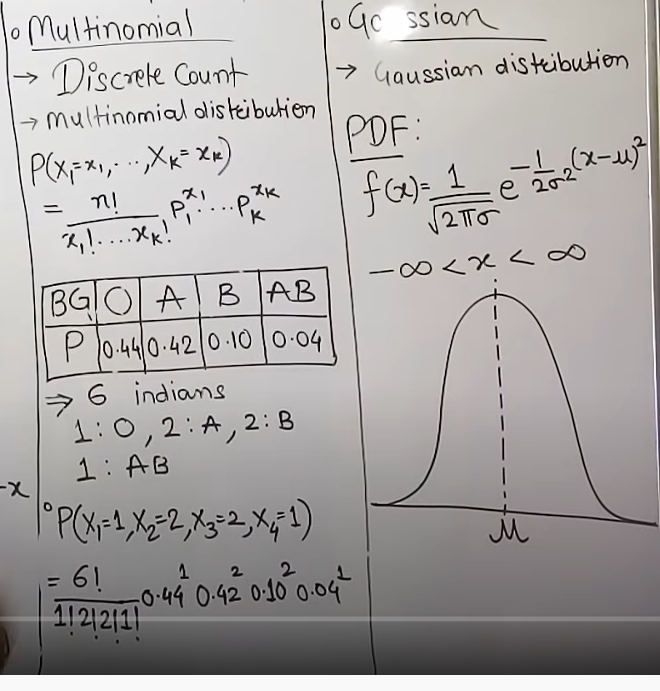 o Multinomial
→ Discrete Count
→ Multinomial distribution
P(X₁=x₁, ..., X_K = x_K)
= n! / x₁!....x_K! P₁^x₁ .... P_K^x_K
BG O A B AB
P 0.44 0.42 0.10 0.04
⇒ 6 indians
1:O, 2:A, 2:B
1: AB
-x
° P(X₁=1, X₂=2, X₃=2, X₄=1)
= 6! / 1!2!2!1! 0.44^1 0.42^2 0.10^2 0.04^1
o Ga ssian
→ Gaussian distribution
PDF:
f(x) = 1/√2πσ e^-1/2σ² (x-μ)²
-∞ < x < ∞
μ